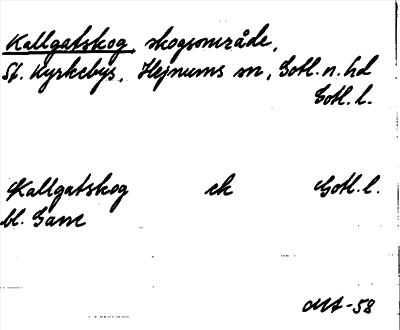 Kallgatskog, skogsområde,
St. Kyrkebys, Hejnums sn, Gotl. n. hd
Gotl. l.
Kallgatskog ek Gotl. l.
bl. Gane
MA-58